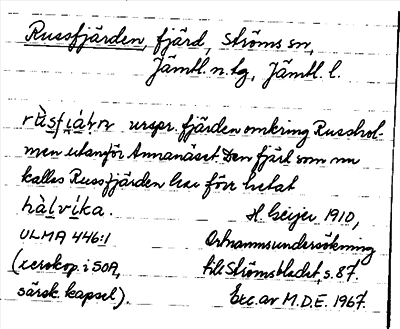 Russfjärden, fjärd, Ströms sn,
Jämtl. n. tg, Jämtl. l.
rùsfiàɽn urspr. fjärden omkring Russhol-
men utanför Annanäset. Den fjärd som nu
kallas Russfjärden har förr hetat
hàlvìka.
H. Geijer 1910,
ULMA 446:1
Ortnamnsundersökning
(xerokop. i SOA,
till Strömsbladet, s. 87.
särsk. kapsel).
Exc. av M.D.E. 1967.